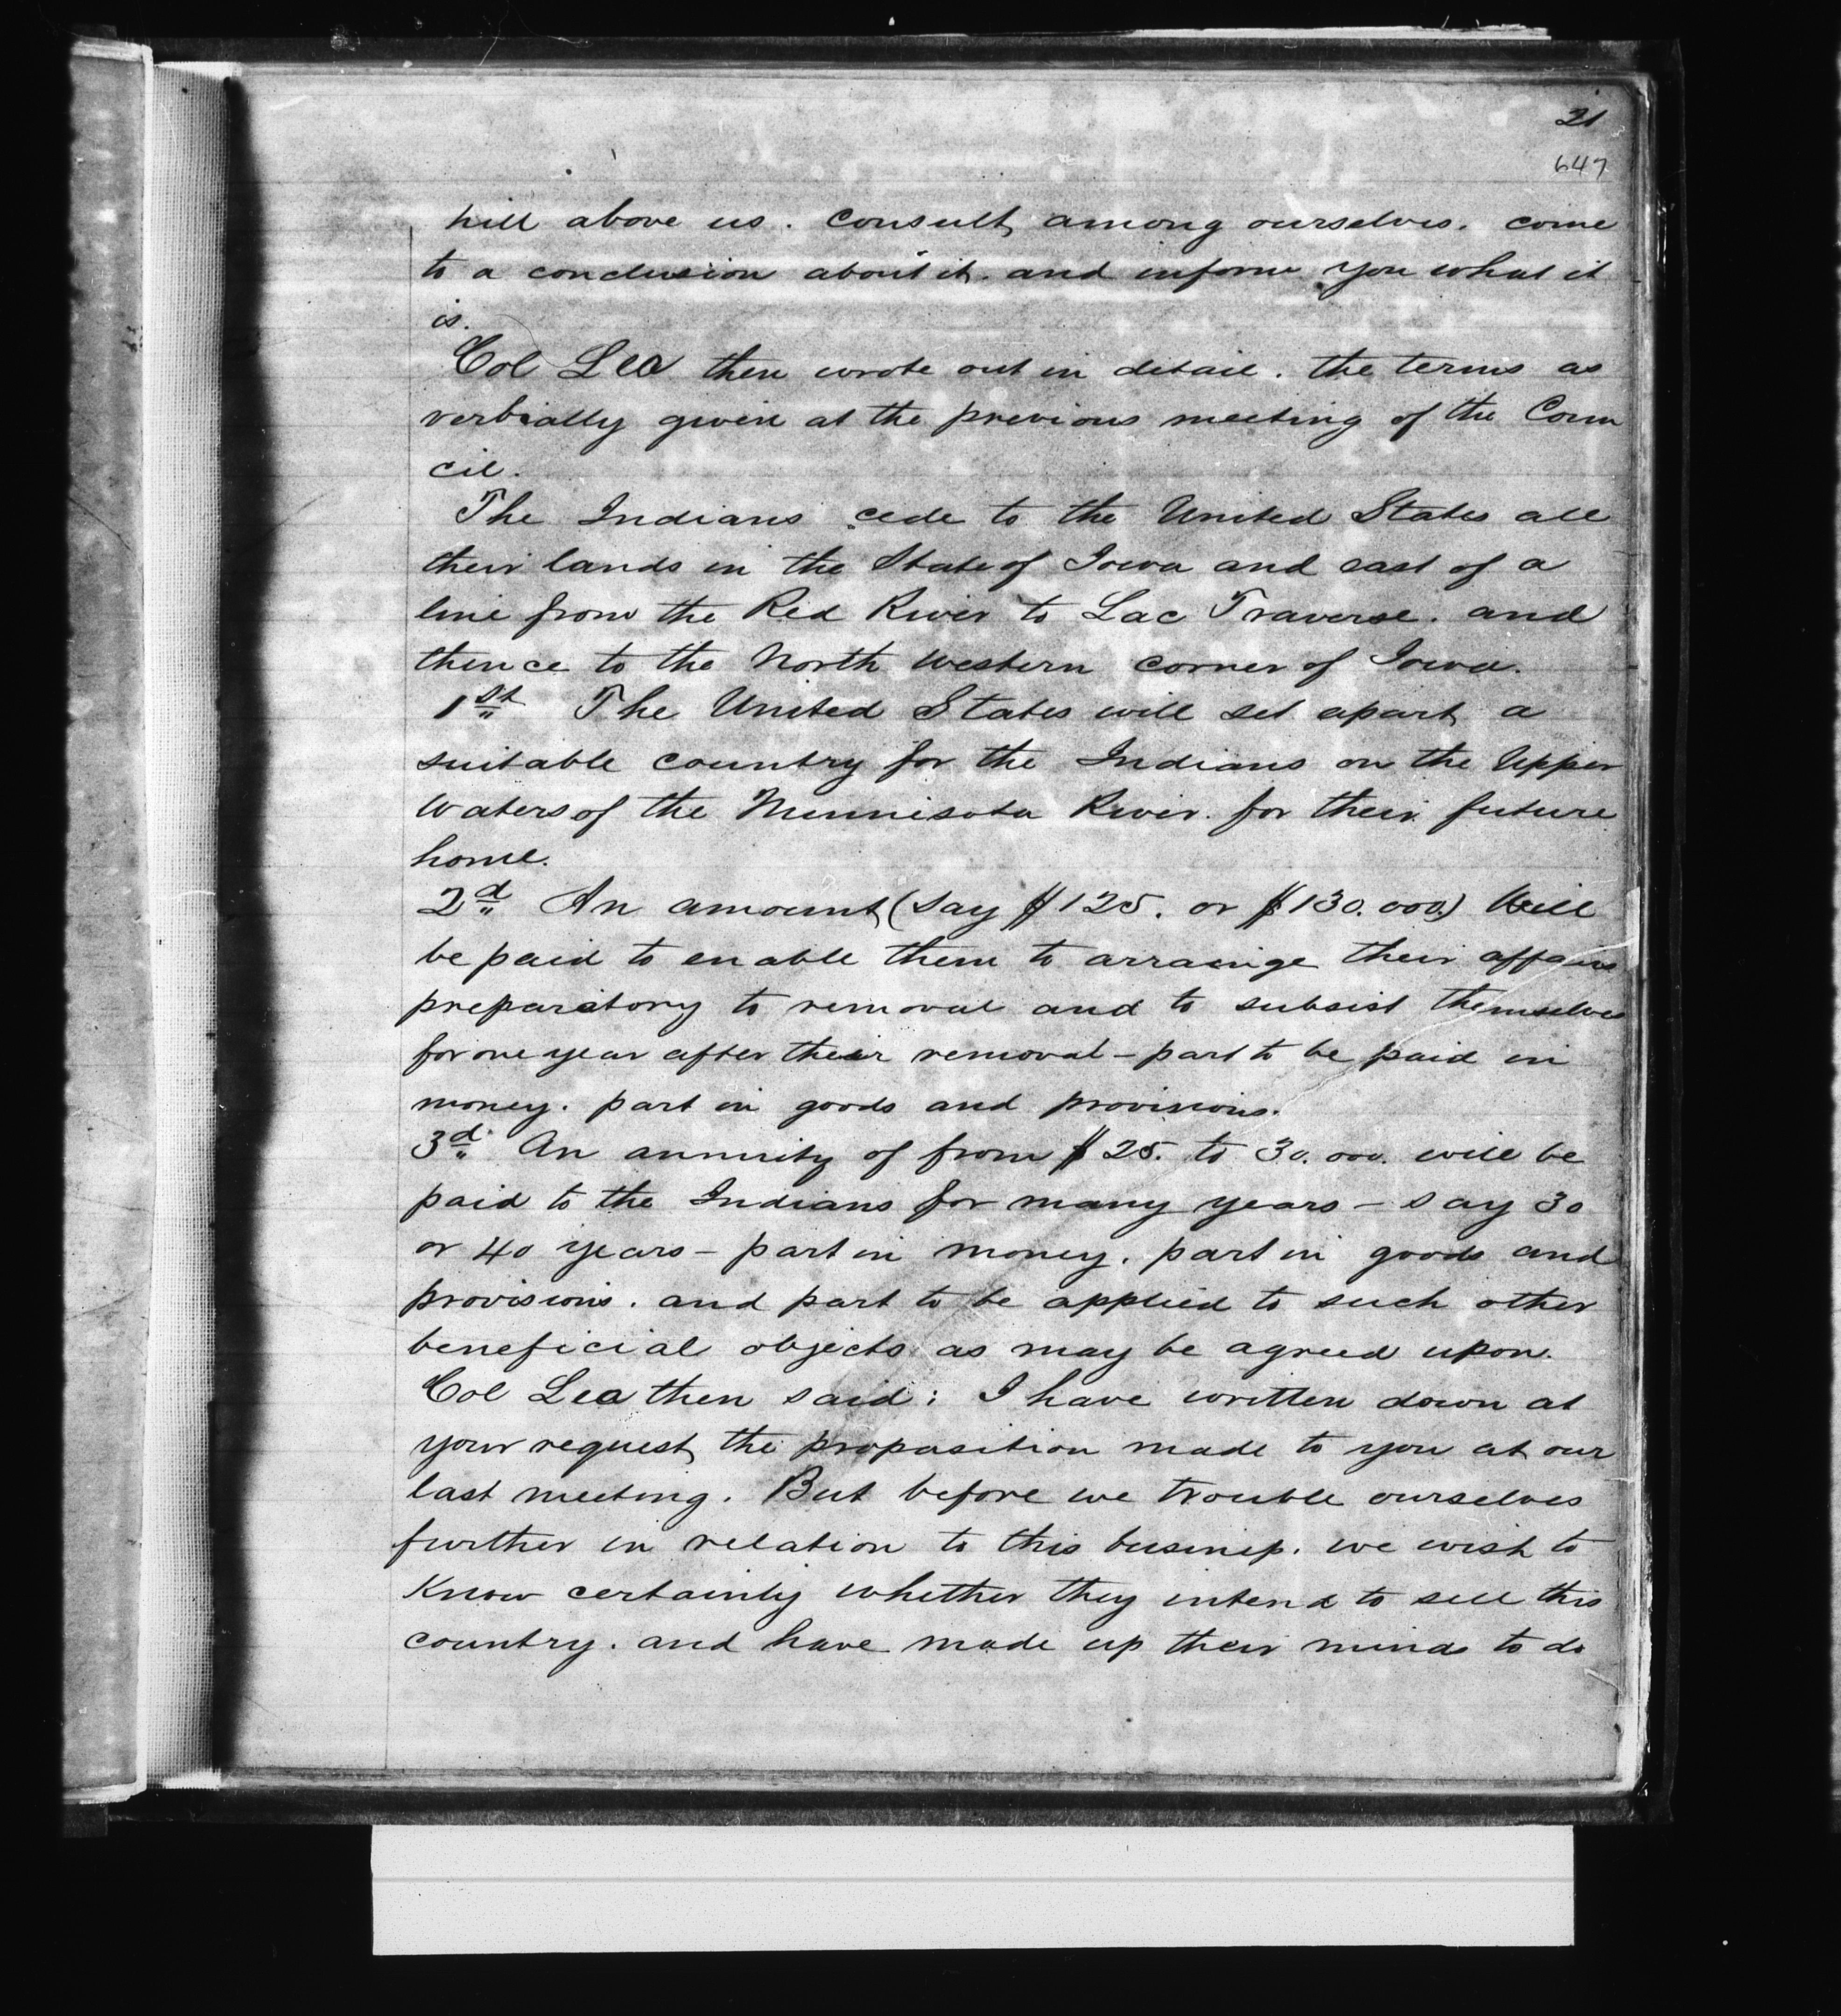 21
647
hill above us. consult among ourselves. come
to a conclusion about it. and inform you what it
is.
Col Lea then wrote out in detail. the terms as
verbially given at the previous meeting of the Coun
cil.
The Indians cede to the United States all
their lands in the State of Iowa and east of a
line from the Red River to Lac Traverse. and
thence to the North Western corner of Iowa.
1st The United States will set apart a
suitable country for the Indians on the Upper
Waters of the Minnisota River. for their future
home.
2d An amount (say $125. or $130.000.) Will
be paid to enable them to arrainge their affairs
preparatory to removal and to subsist themselves
for one year after their removal - part to be paid in
money. part in goods and provisions.
3d An annuity of from $25. to 30.000. will be
paid to the Indians for many years - say 30
or 40 years - part in money. part in goods and
provisions. and part to be applied to such other
beneficial objects as may be agreed upon.
Col Lea then said: I have written down at
your request the proposition made to you at our
last meeting. But before we trouble ourselves
further in relation to this business. we wish to
Know certainly whether they intend to sell this
country. and have made up their minds to do